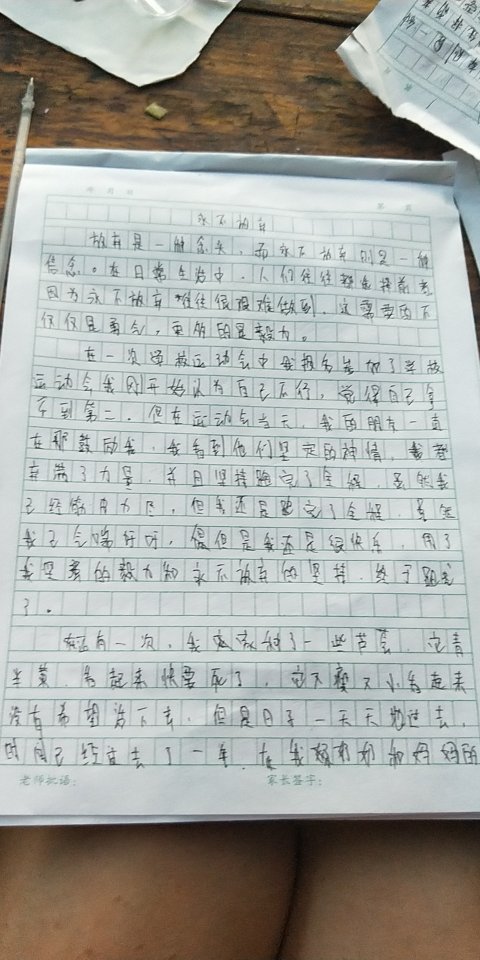 年 月 日
第 页
永不放弃
放弃是一种念头，而永不放弃则是一种
信念。在日常生活中，人们往往都选择前者
因为永不放弃难往很很难做到，这需要的不
仅仅是勇气，更多的是毅力。
在一次学校运动会中我报名参加了学校
运动会我刚开始认为自己不行，觉得自己拿
不到第二，但在运动会当天，我的朋友一直
在那鼓励我，我看到他们坚定的神情，我
充满了力量，并且坚持跑完了全程，虽然我
已经筋疲力尽，但我还是跑完了全程，虽然
我已气喘吁吁，但是我还是很快乐，用了
我坚毅的毅力和永不放弃的坚持，终于跑完
了。
还有一次，我家种了一些芦荟，它青
半黄，看起来快要死了，它又瘦又小看起来
没有希望活下去，但是日子一天天地过去，
时间已经过去了一年，在我奶奶和妈妈的
老师批语：
家长签字：